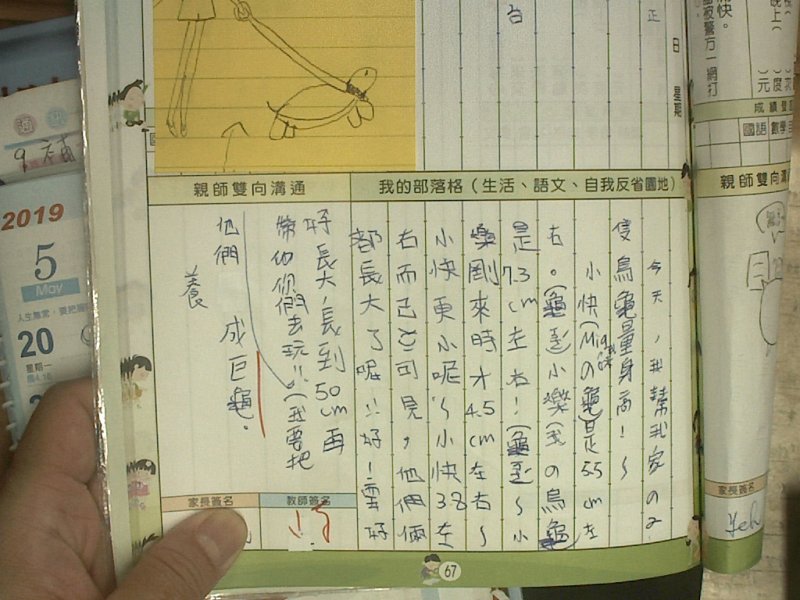 正
日
星期
台
快。
晚上(
部被警方一網打
)元
)度
)次
成績登
國語
數學
親師雙向溝
家長簽名
Yeh
我的部落格(生活、語文、自我反省園地)
親師雙向溝通
今天,我幫我家の2
隻烏龜量身高!~
小快(Migの龜)是5.5cm左
右。(龜
小樂(我の烏龜)
是7.3cm左右!(龜
~小
樂剛來時才4.5cm左右~
小快更小呢~小快3.8左
右而已
可見,他們倆
都長大了呢!!好!要好
好長大,長到50cm再
帶他們去玩!!(我要把
他們
養
成巨龜。
家長簽名
教師簽名
67
2019
5
May
20
星期一
9